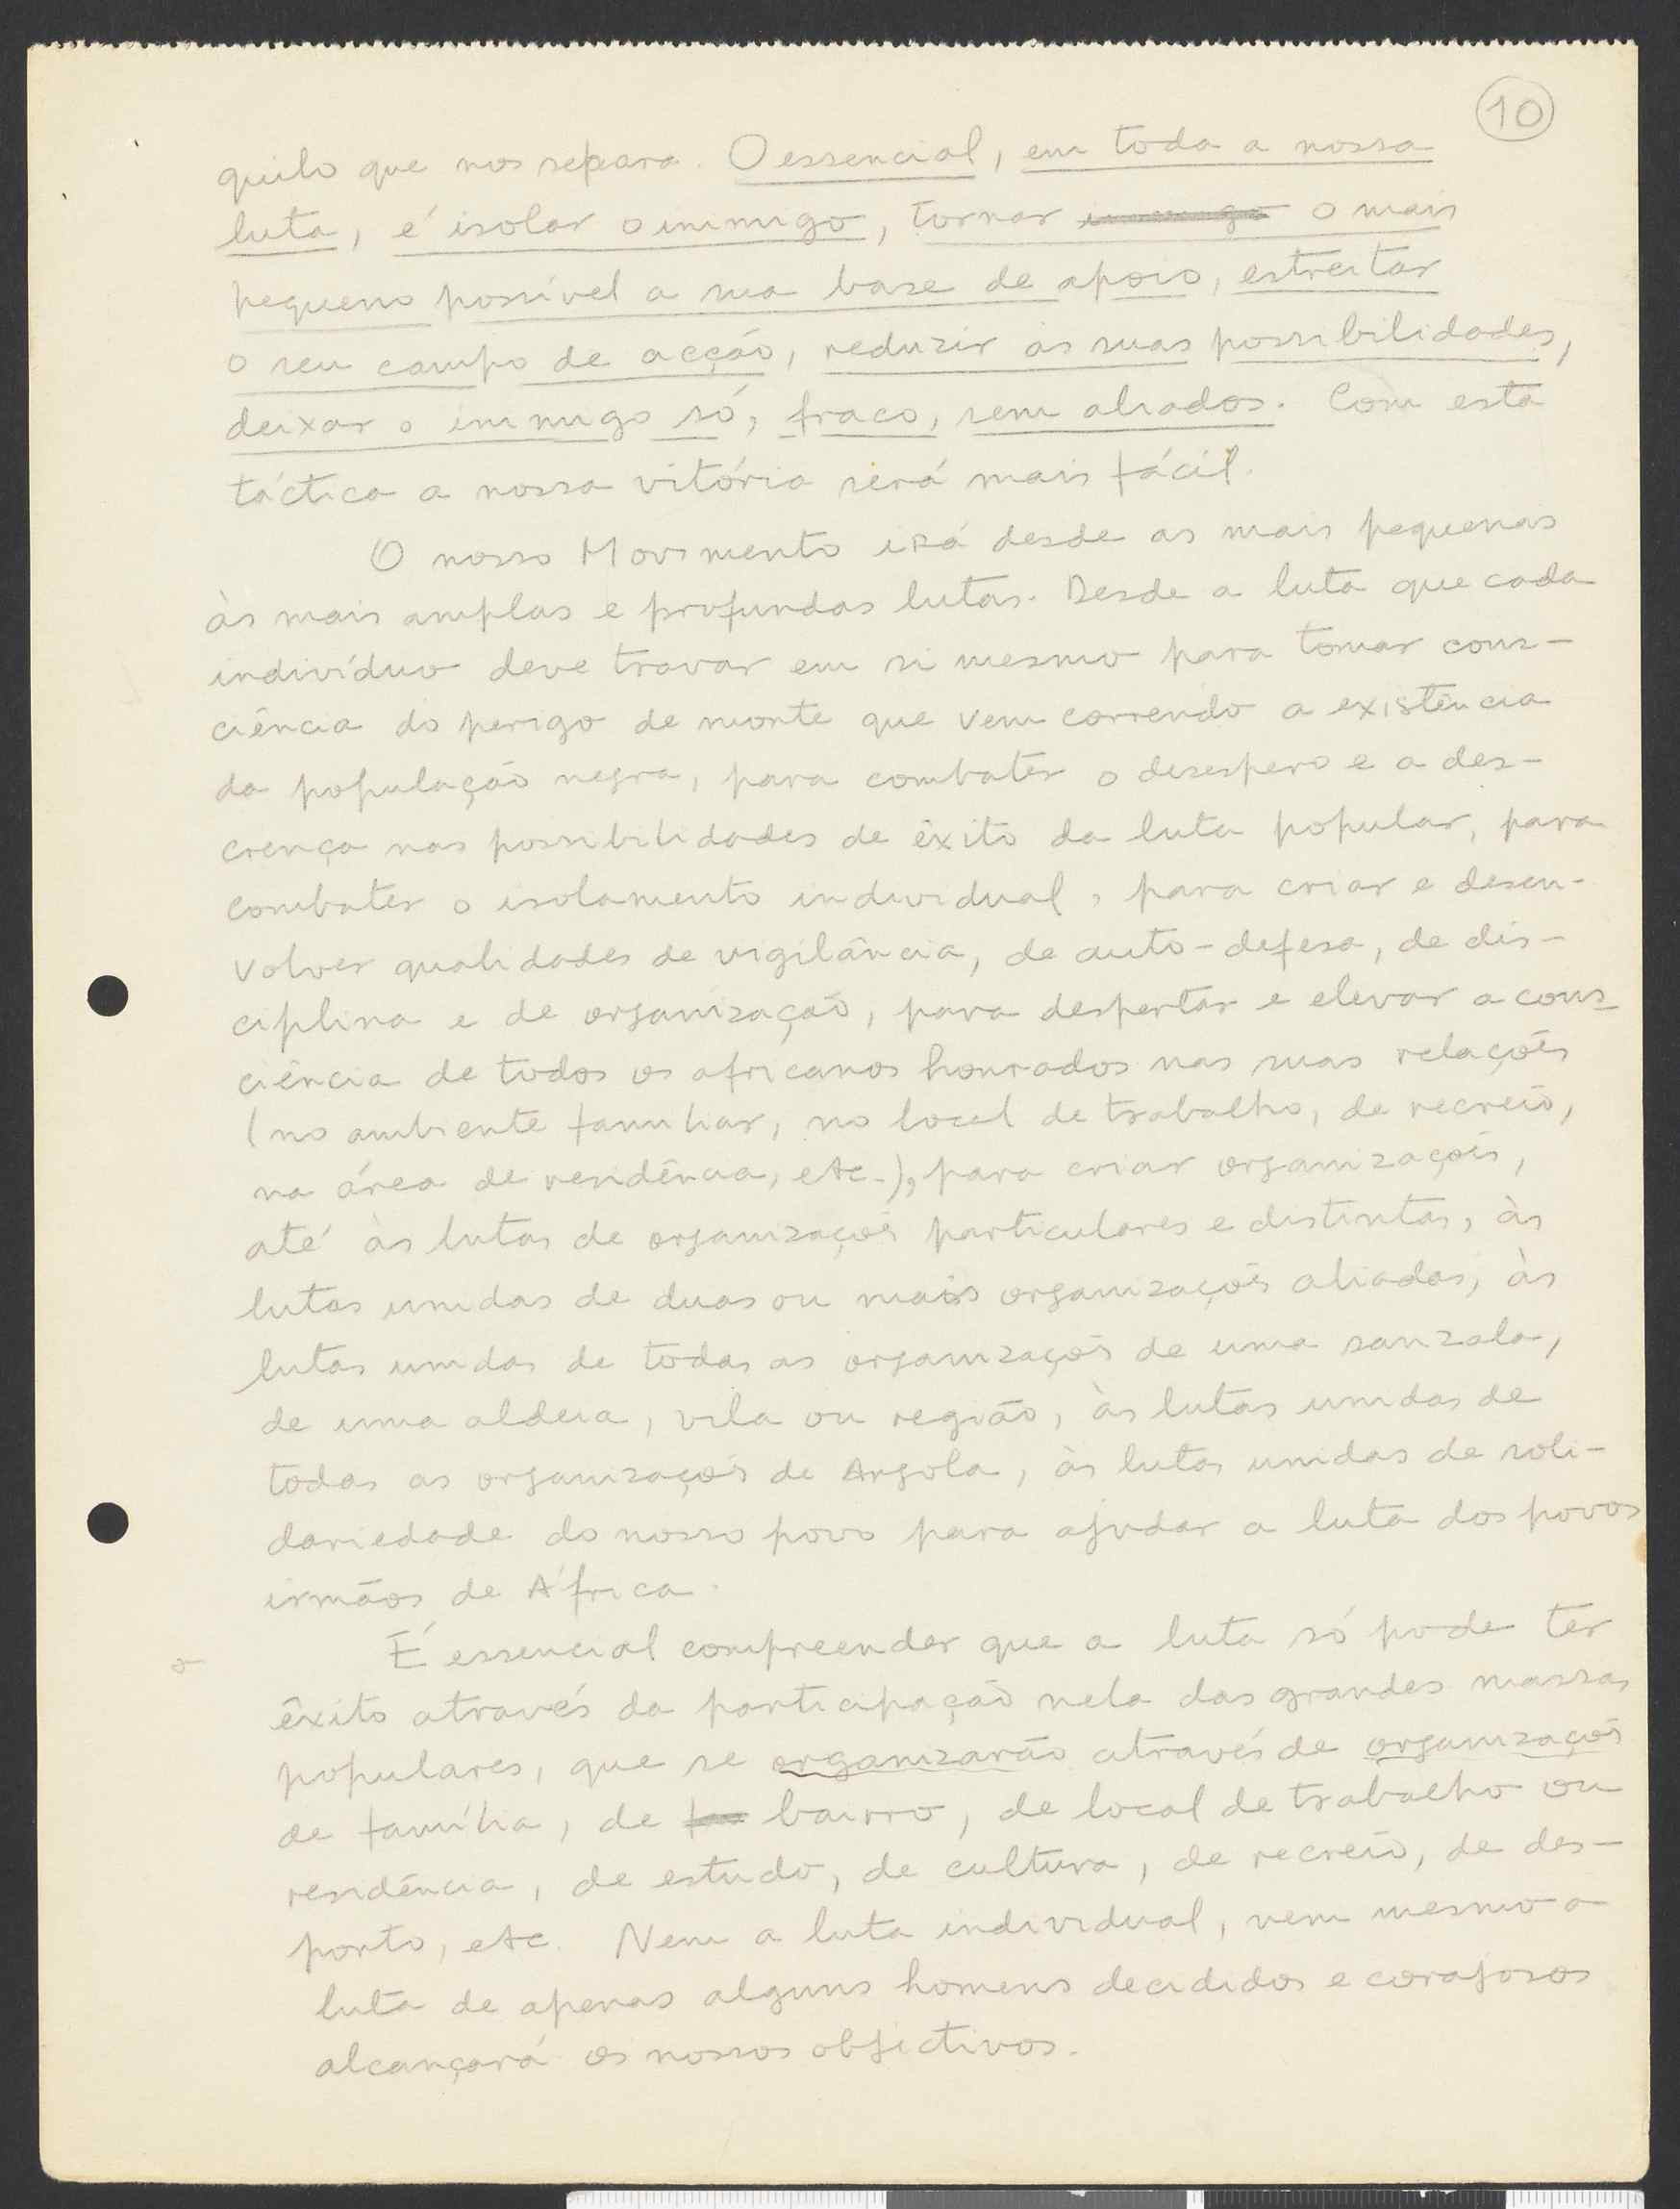 10
quilo que nos separa. O essencial, em toda a nossa
luta, é isolar o inimigo, tornar inimigo o mais
pequeno possível a sua base de apoio, estreitar
o seu campo de acção, reduzir as suas possibilidades,
deixar o inimigo só, fraco, sem aliados. Com esta
táctica a nossa vitória será mais fácil.
O nosso Movimento irá desde as mais pequenas
às mais amplas e profundas lutas. Desde a luta que cada
indivíduo deve travar em si mesmo para tomar cons-
ciência do perigo de morte que vem correndo a existência
da população negra, para combater o desespero e a des-
crença nas possibilidades de êxito da luta popular, para
combater o isolamento individual, para criar e desen-
volver qualidades de vigilância, de auto-defesa, de dis-
ciplina e de organização, para despertar e elevar a cons-
ciência de todos os africanos honrados nas suas relações
(no ambiente familiar, no local de trabalho, de recreio,
na área de residência, etc.), para criar organizações,
até às lutas de organizações particulares e distintas, às
lutas unidas de duas ou mais organizações aliadas, às
lutas unidas de todas as organizações de uma sanzala,
de uma aldeia, vila ou região, às lutas unidas de
todas as organizações de Angola, às lutas unidas de soli-
dariedade do nosso povo para ajudar a luta dos povos
irmãos de África.
É essencial compreender que a luta só pode ter
êxito através da participação nela das grandes massas
populares, que se organizarão através de organizações
de família, de bairro, de local de trabalho ou
residência, de estudo, de cultura, de recreio, de des-
porto, etc. Nem a luta individual, nem mesmo a
luta de apenas alguns homens decididos e corajosos
alcançará os nossos objectivos.